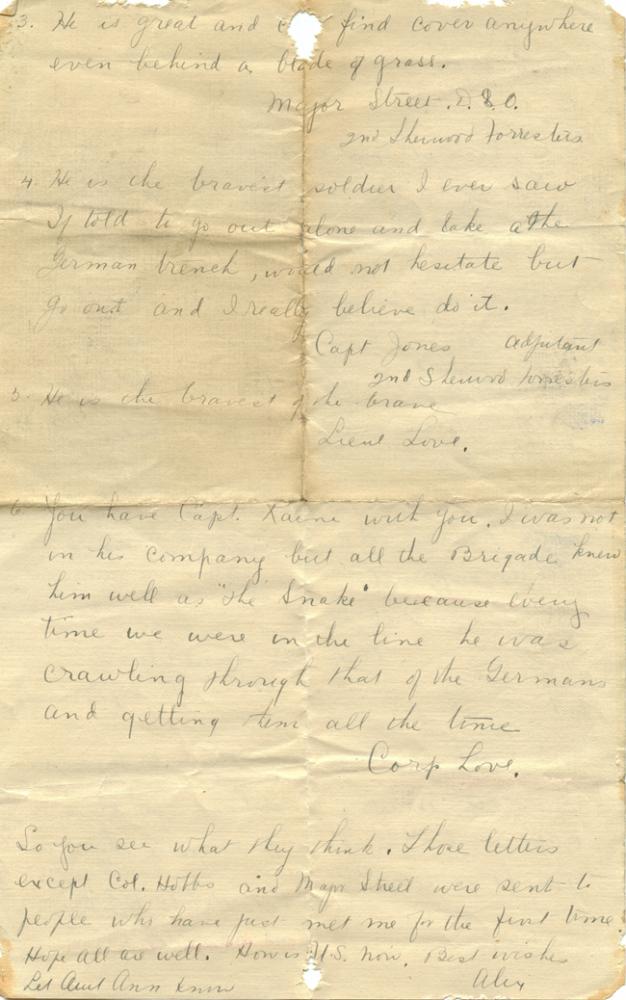 3. He is great and find cover anywhere
even behind a blade of grass.
Major Street. D.S.O.
2nd Sherwood Forresters
4. He is the bravest soldier I ever saw
If told to go out alone and take the
German trench, would not hesitate but
go out and I really believe do it.
Capt Jones adjutant
2nd Sherwood Forresters
5. He is the bravest of the brave
Lieut Love.
6 You have Capt. with you. I was not
in his company but all the Brigade knew
him well as "the Snake" because every
time we were in the line he was
crawling through that of the Germans
and getting all the time
Corp Love.
So you see what they think. Those letters
except Col. Hobbs and Major Street were sent to
people who have just met me for the first time.
Hope all are well. How is U.S. now. Best wishes
Let Aunt Ann know Alex